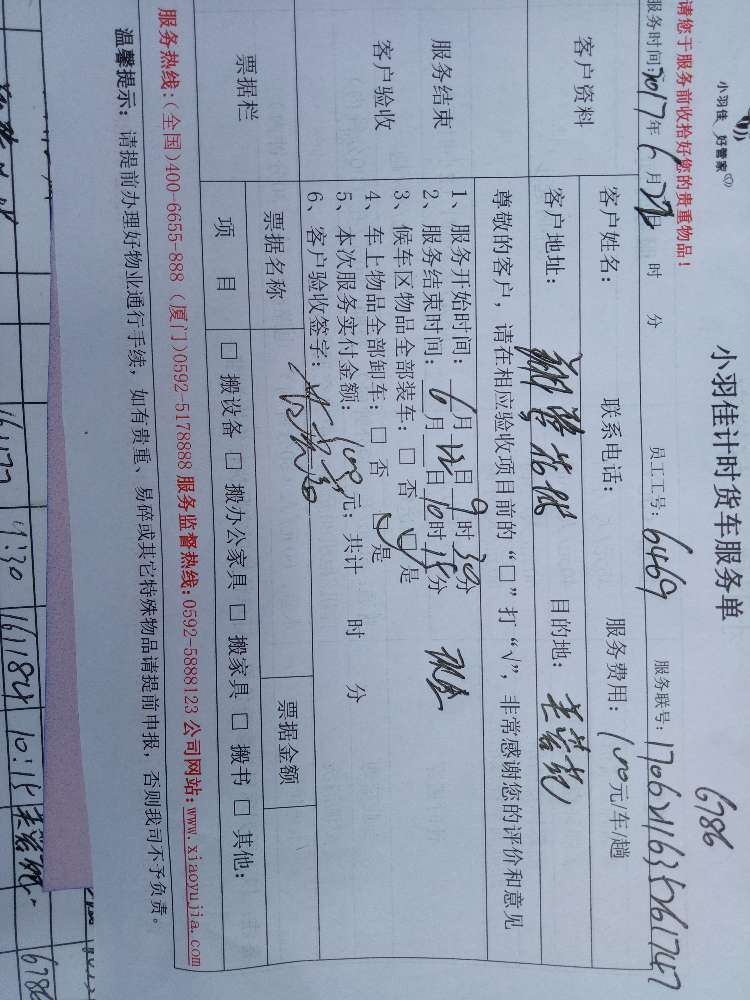 小羽佳 好管家
小羽佳计时货车服务单
6786
请您于服务前收拾好您的贵重物品!
服务时间:2017年6月22日 时 分 员工工号:6469 服务联号:
客户资料
客户姓名: 联系电话: 服务费用:100元/车/趟
客户地址: 目的地:
服务结束
客户验收
尊敬的客户,请在相应验收项目前的“□”打“√”,非常感谢您的评价和意见
1、服务开始时间:6月22日9时30分
2、服务结束时间:6月22日10时15分 现金
3、候车区物品全部装车:□ 否 □ 是
4、车上物品全部卸车:□ 否 □ 是
5、本次服务实付金额:100元;共计 时 分
6、客户验收签字:
票据栏
票据名称 票据金额
项 目 □ 搬设备 □ 搬办公家具 □ 搬家具 □ 搬书 □ 其他:
服务热线:(全国)400-6655-888 (厦门)0592-5178888 服务监督热线:0592-5888123 公司网站:www.xiaoyujia.com
温馨提示:请提前办理好物业通行手续,如有贵重、易碎或其它特殊物品请提前申报,否则我司不予负责。
10:15
6786